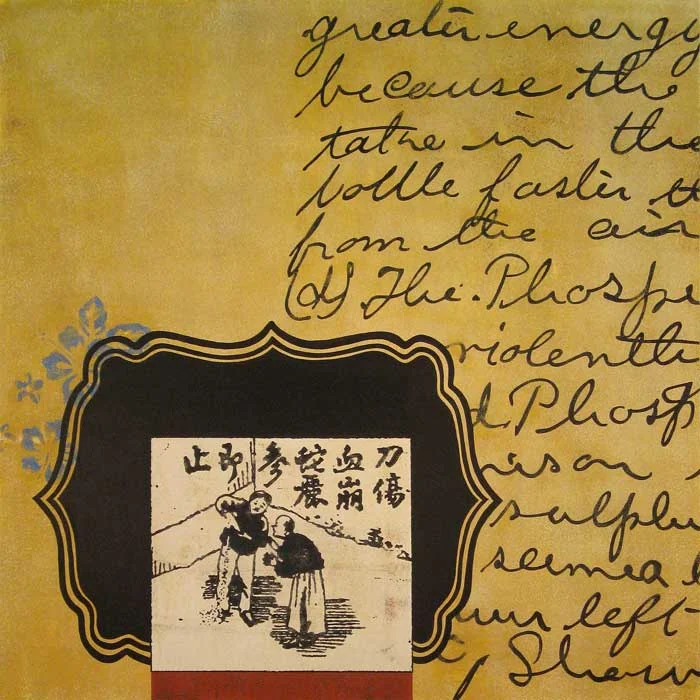 greater energy
because the
take in the
bottle faster
from the air
(d) The Phosp
violentl
d Phosp
sulphu
left
Show
刀傷
血崩
蛇
參
即
止